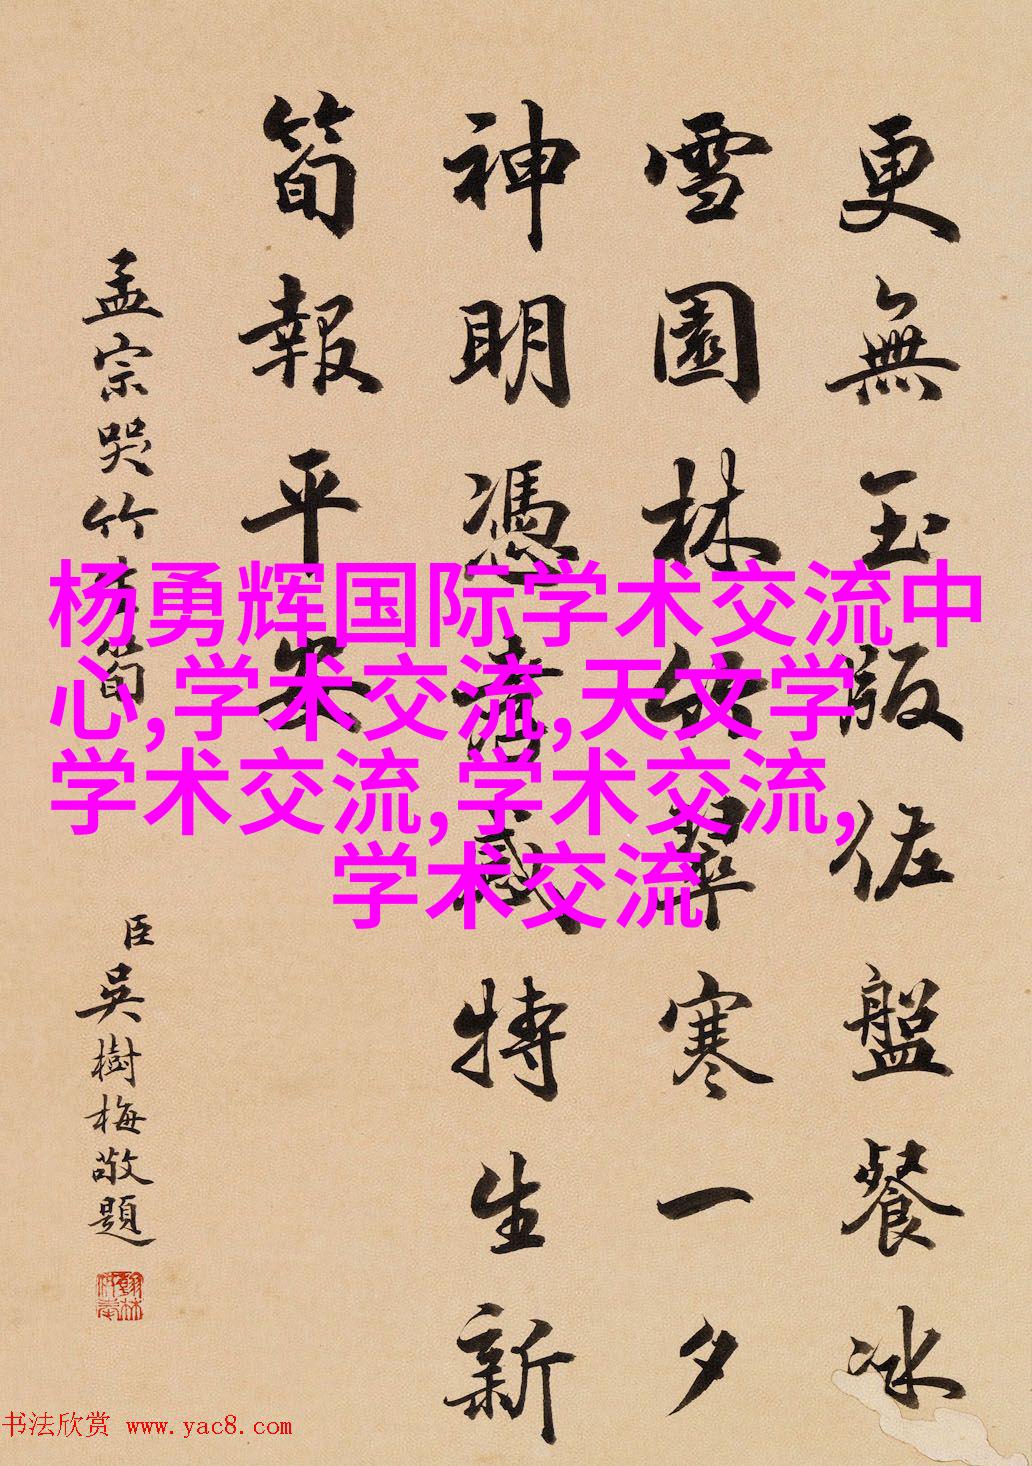 更無玉版佐盤餐冰
雪園林竹翠寒一夕
神明憑孝感特生新
筍報平安
孟宗哭竹生筍
臣吳樹梅敬題
杨勇辉国际学术交流中
心,学术交流,天文学
学术交流,学术交流,
学术交流
书法欣赏 www.yac8.com